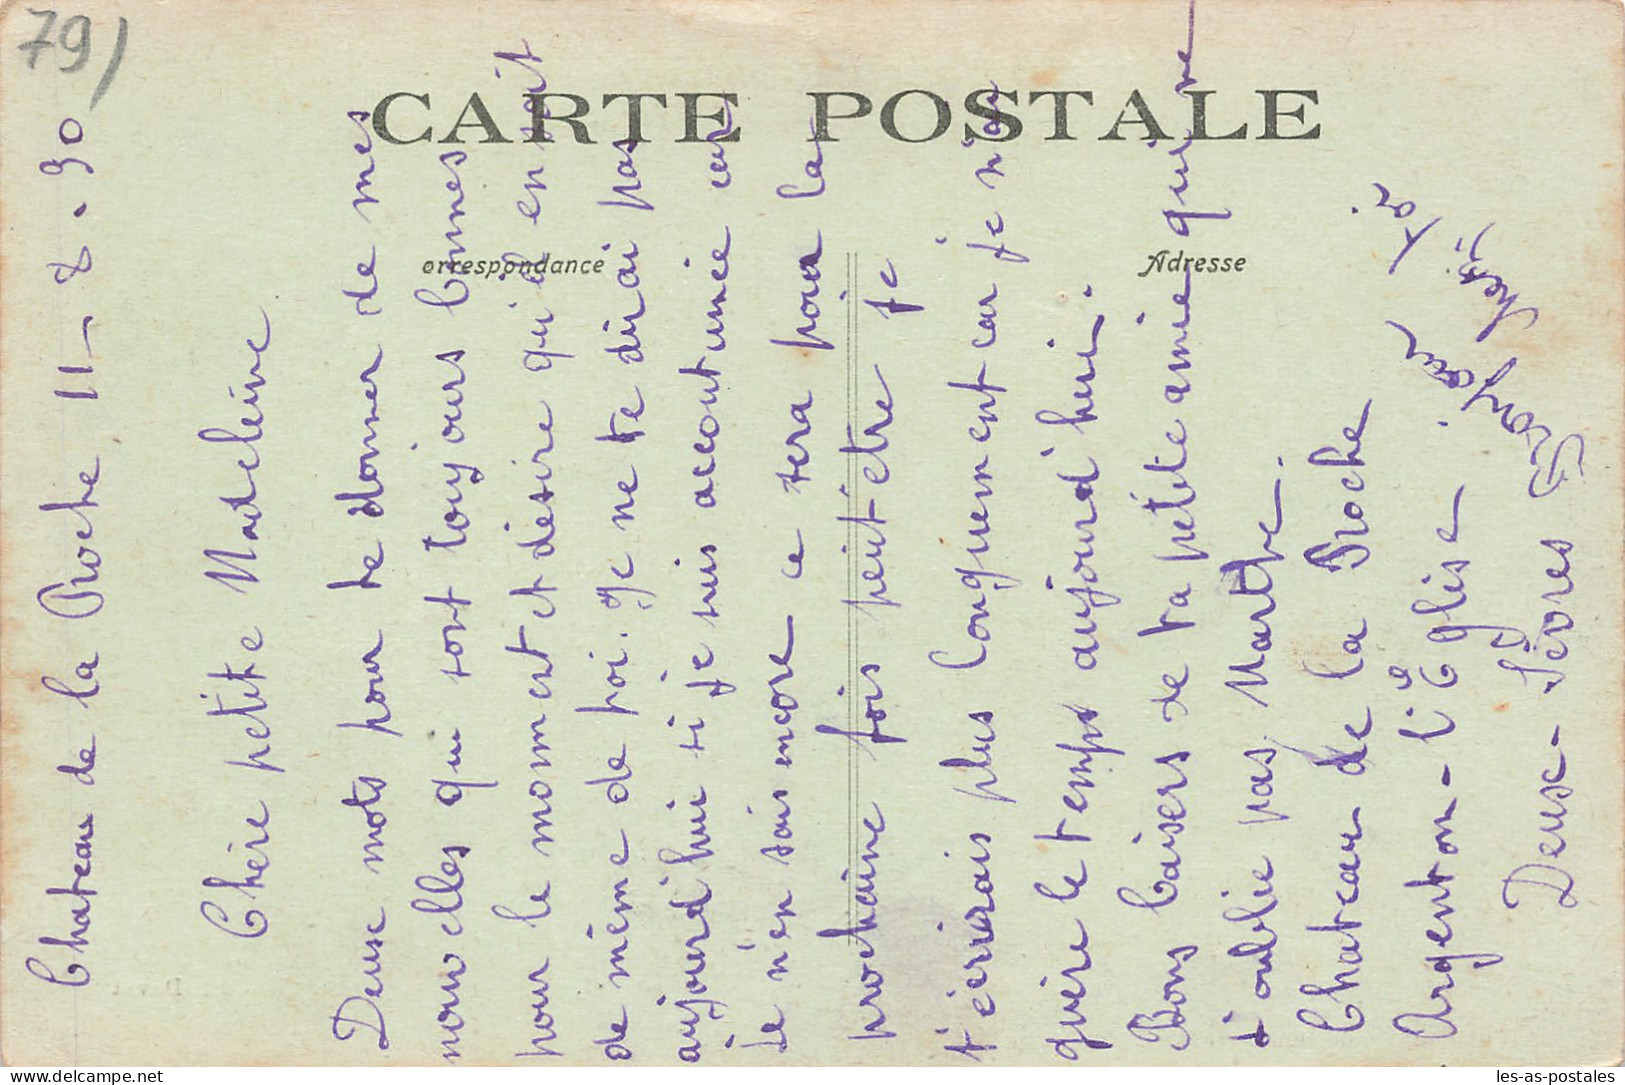 79)
CARTE POSTALE
orrespondance
Adresse
Chateau de la Roche 11-8.30
Chère petite Madeleine
Deux mots pour te donner de mes
nouvelles qui sont toujours bonnes
pour le moment et désire qu'il en soit
de même de toi. Je ne te dirai pas
aujourd'hui si je suis accoutumée car
je n'en sais encore ce sera pour la
prochaine fois peut-être je
t'écrirais plus longuement car je n'ai
guère le temps aujourd'hui.
Bons baisers de ta petite amie qui ne
t'oublie pas. Marthe.
Chateau de la Roche
Argenton-l'Eglise
Deux-Sèvres
www.delcampe.net
les-as-postales